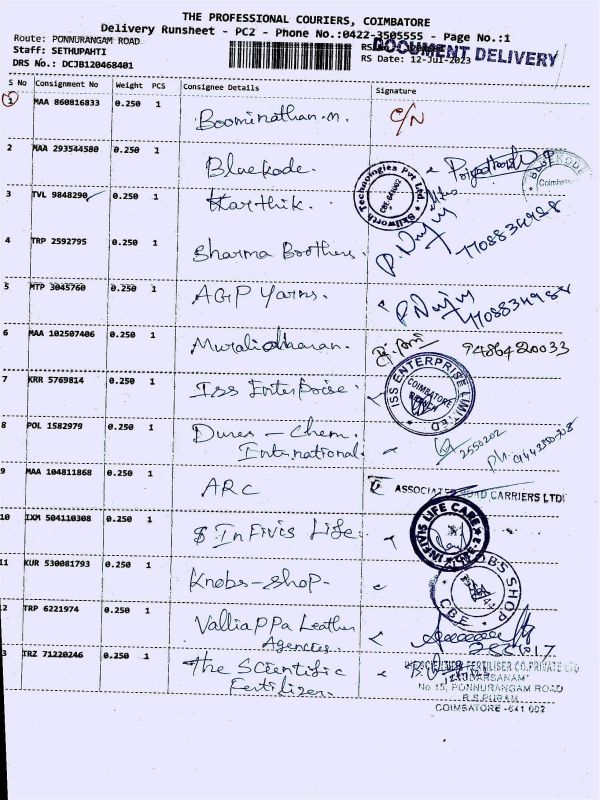 THE PROFESSIONAL COURIERS, COIMBATORE
Delivery Runsheet - PC2 - Phone No.:0422-3505555 - Page No.:1
Route: PONNURANGAM ROAD
Staff: SETHUPAHTI
DOCUMENT DELIVERY
DRS No.: DCJB120468401
RS Date: 12-Jul-2023
S No Consignment No Weight PCS Consignee Details Signature
1 MAA 860816833 0.250 1 Boominathan.m. C/N
2 MAA 293544580 0.250 1 Bluekode.
3 TVL 9848290 0.250 1 Karthik.
Skilworth Technologies Pvt Ltd.
4 TRP 2592795 0.250 1 Sharma Brothers.
5 MTP 3045760 0.250 1 AGP Yarns.
6 MAA 102507406 0.250 1 Muralidharan. 9486420033
7 KRR 5769814 0.250 1 Iss Enterprise.
ISS ENTERPRISE LIMITED
COIMBATORE
BRANCH
8 POL 1582979 0.250 1 Durex - Chem.
International. 2550202
9 MAA 104811868 0.250 1 ARC
ASSOCIATED ROAD CARRIERS LTD
10 IXM 504110308 0.250 1 $ InFivis Life.
INFIVIS LIFE CARE
11 KUR 530081793 0.250 1 Knobs-shop.
KNOBS SHOP
CBE
2 TRP 6221974 0.250 1 Valliappa Leather
Agencies.
3 TRZ 71220246 0.250 1 The Scientific
Fertilizer.
SCIENTIFIC FERTILISER CO.PRIVATE LTD
"SUDARSANAM"
No 15, PONNURANGAM ROAD
R.S.PURAM
COIMBATORE -641 002